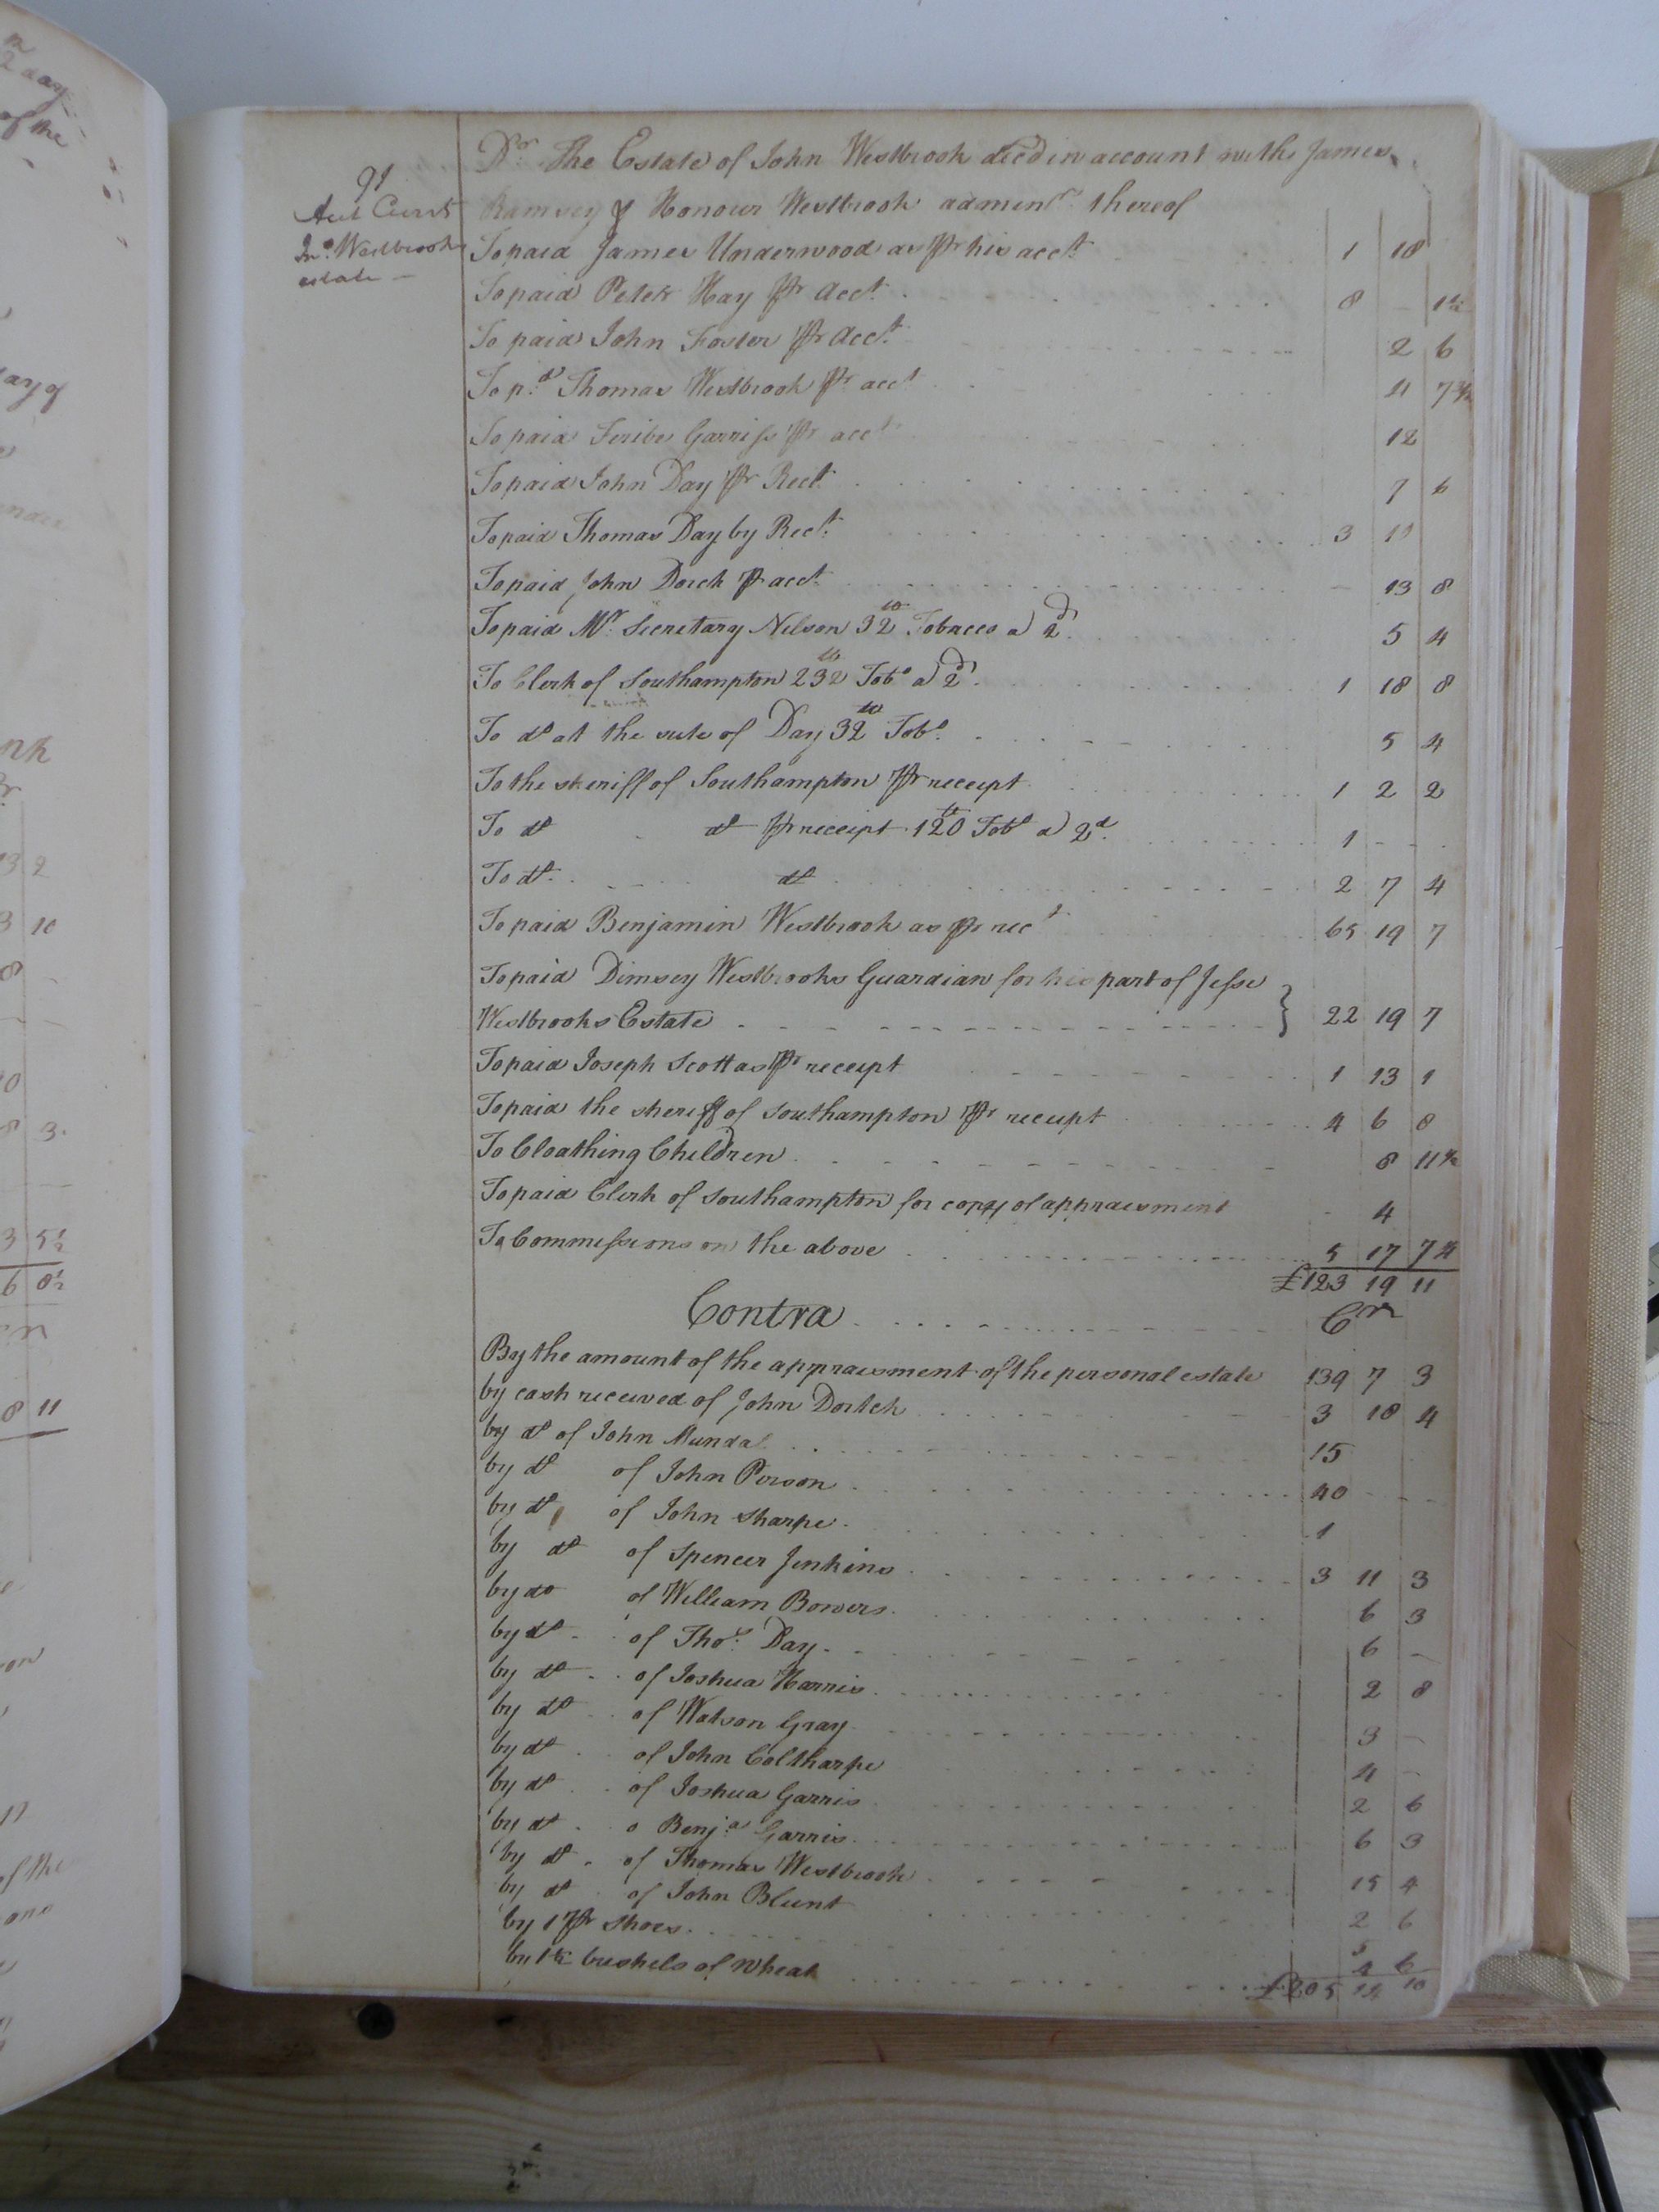 91
Act Curr't
Jno. Westbrook
estate —
Dr. The Estate of John Westbrook decd in account with James
Ramsey & Honour Westbrook admin thereof
To paid James Underwood as pr his acct. 1 18
To paid Peter Hay pr Acct. 8 - 1½
To paid John Foster pr Acct. 2 6
To pd. Thomas Westbrook pr acct 11 7¾
To paid Scribe Garriss pr acct 12
To paid John Day pr Rect. 7 6
To paid Thomas Day by Rect. 3 11
To paid John Dorch pr acct. 13 8
To paid Mr. Secretary Nelson 32 lb Tobacco a 2d. 5 4
To Clerk of Southampton 232 lb Tobo a 2d. 1 18 8
To do at the suit of Day 32 lb Tobo. 5 4
To the sheriff of Southampton pr receipt 1 2 2
To do do pr receipt 120 lb Tobo a 2d. 1 - -
To do. do 2 7 4
To paid Benjamin Westbrook as pr rect 65 19 7
To paid Dimsey Westbrooks Guardian for his part of Jesse
Westbrooks Estate } 22 19 7
To paid Joseph Scott as pr receipt 1 13 1
To paid the sheriff of Southampton pr receipt 4 6 8
To Cloathing Children 8 11½
To paid Clerk of Southampton for copy of appraisment 4
To Commissions on the above 5 17 7¼
£123 19 11
Contra Cr
By the amount of the appraisment of the personal estate 139 7 3
by cash received of John Dortch 3 18 4
by do of John Munda 15
by do of John Person 40 - -
by do of John Sharpe 1
by do of Spencer Jenkins 3 11 3
by do of William Bowers 6 3
by do of Thos. Day 6 -
by do of Joshua Harris 2 8
by do of Watson Gray 3 -
by do of John Coltharpe 4 -
by do of Joshua Garris 2 6
by do o Benja Garris 6 3
by do of Thomas Westbrook 15 4
by do of John Blunt 2 6
by 1 pr shoes 5
by 1½ bushels of wheat 4 6
£205 14 10